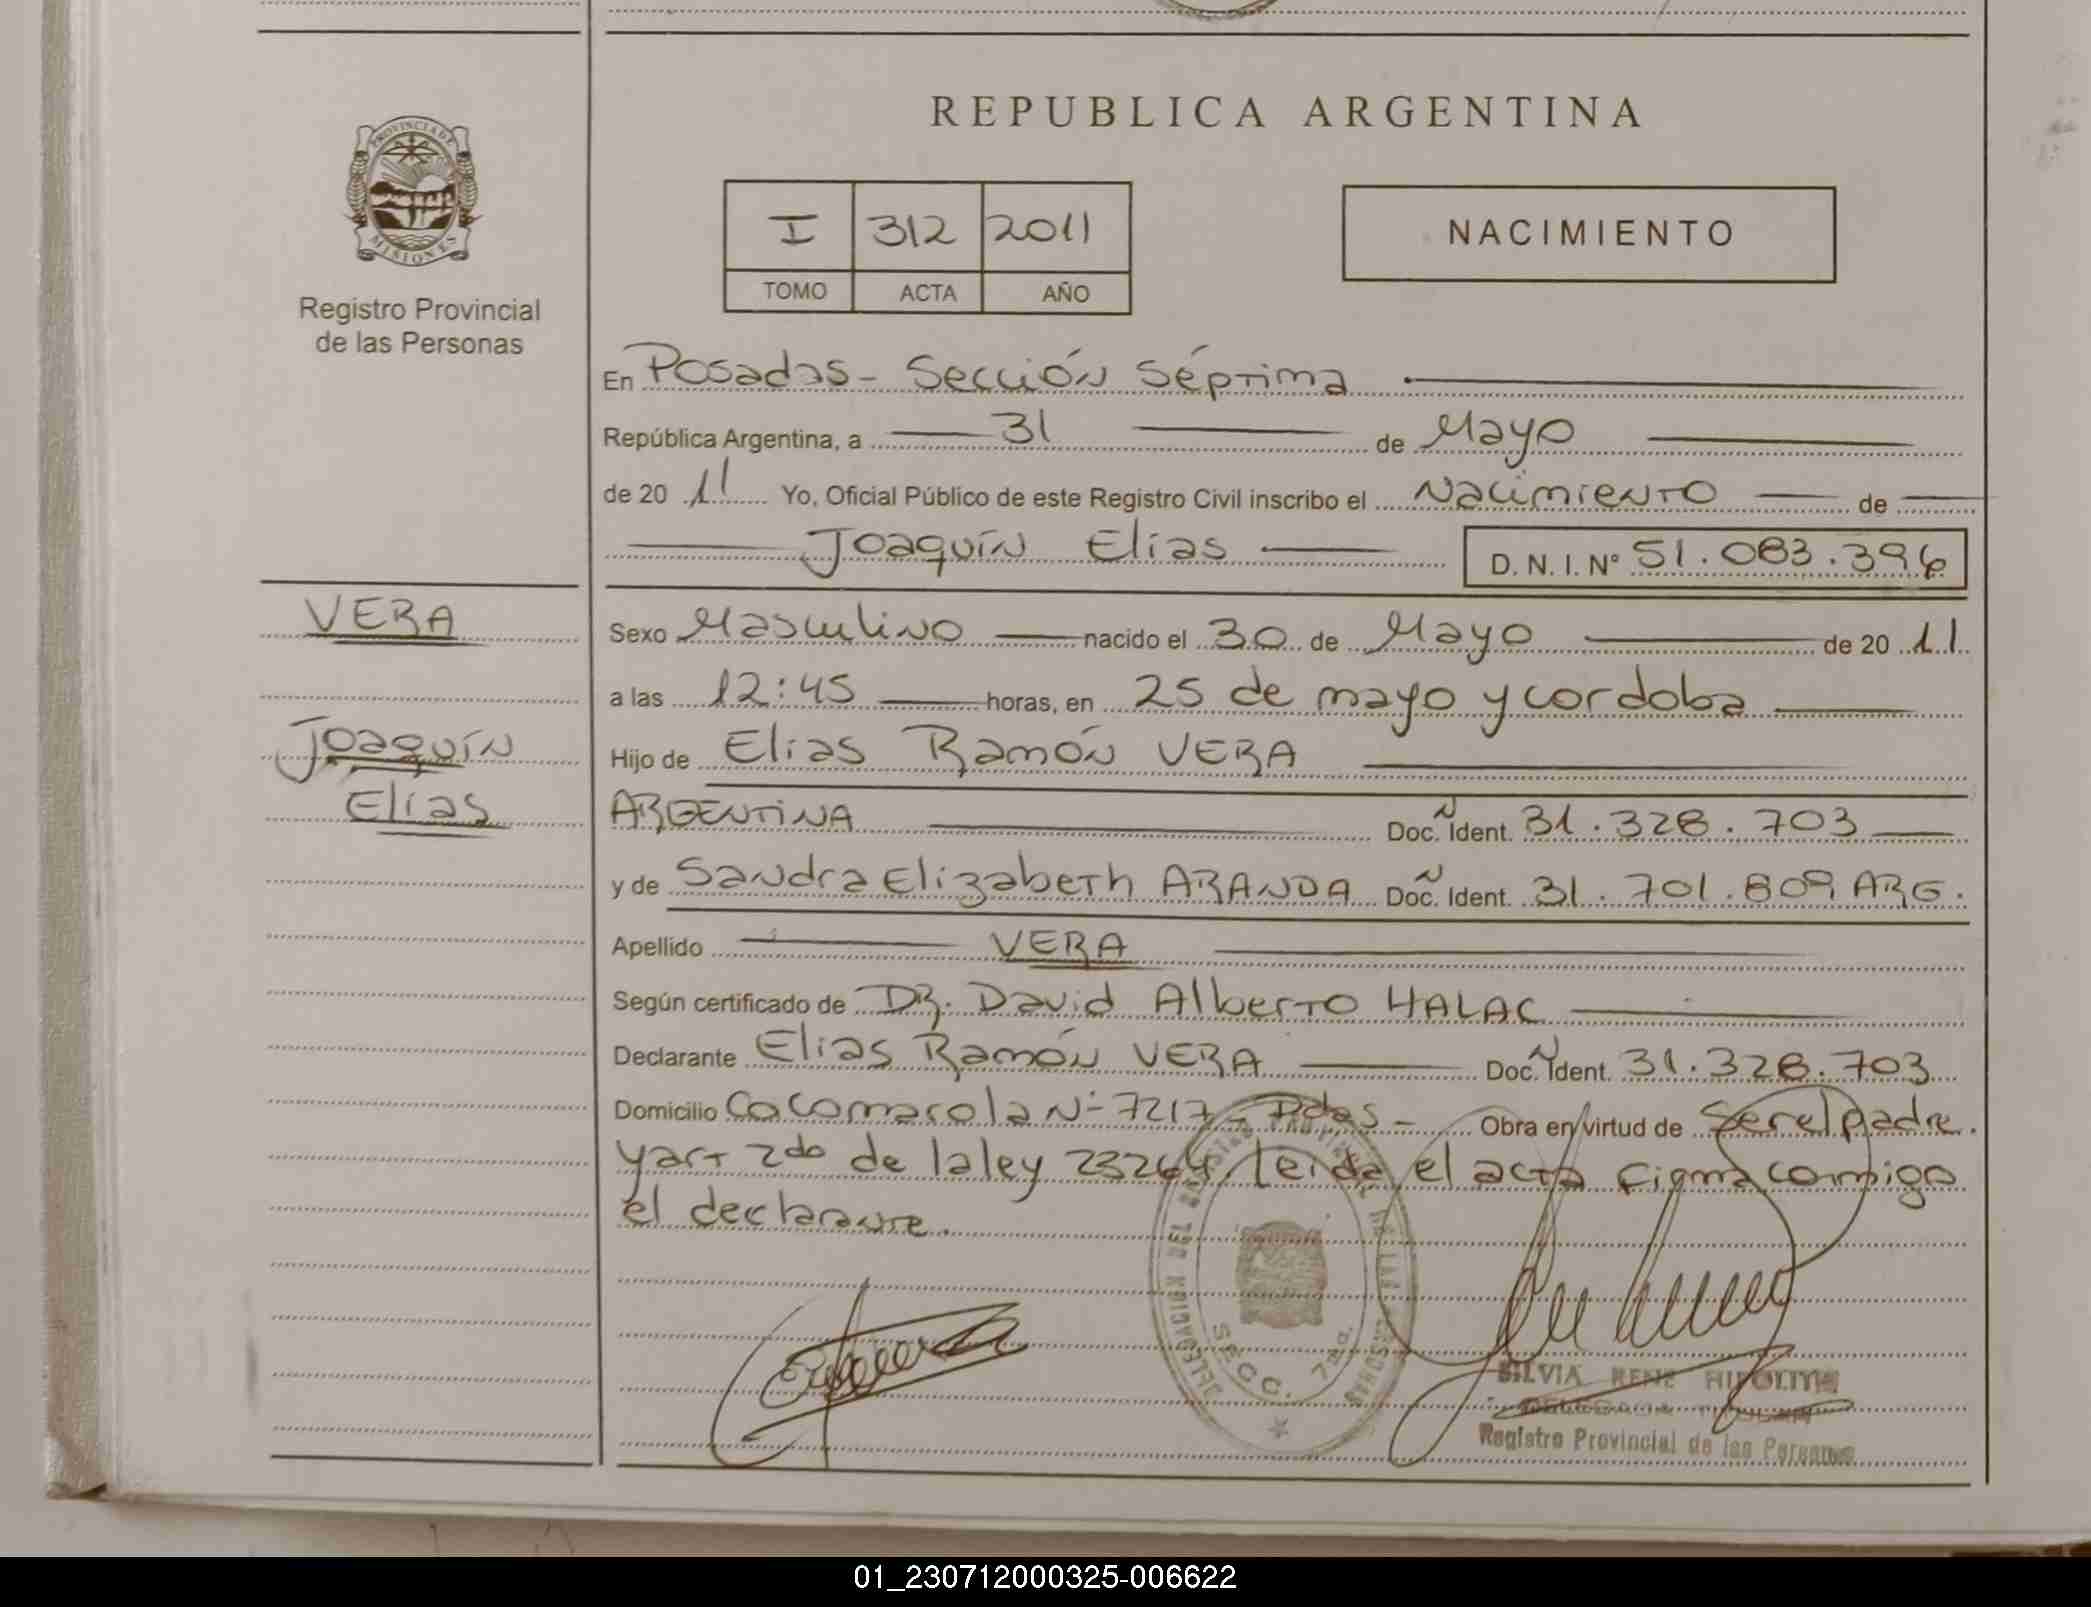 REPUBLICA ARGENTINA
PROVINCIA DE
MISIONES
Registro Provincial
de las Personas
I 312 2011
TOMO ACTA AÑO
NACIMIENTO
En Posadas - Sección Séptima
República Argentina, a 31 de Mayo
de 20 11 Yo, Oficial Público de este Registro Civil inscribo el Nacimiento de
Joaquín Elías D. N. I. Nº 51.083.396
VERA
Joaquín
Elías
Sexo Masculino nacido el 30 de Mayo de 20 11
a las 12:45 horas, en 25 de mayo y cordoba
Hijo de Elias Ramón VERA
ARGENTINA Doc. Ident. 31.328.703
y de Sandra Elizabeth ARANDA Doc. Ident. 31.701.809 ARG.
Apellido VERA
Según certificado de DR. David Alberto HALAC
Declarante Elias Ramón VERA Doc. Ident. 31.328.703
Domicilio Cocomarola N- 7217 - Pdas - Obra en virtud de ser el padre.
y art 2do de la ley 23264 Leida el acta firma conmigo
el declarante.
DELEGACION
SECC. 7ma.
SILVIA RENE HIPOLITO
Registro Provincial de las Personas
01_230712000325-006622